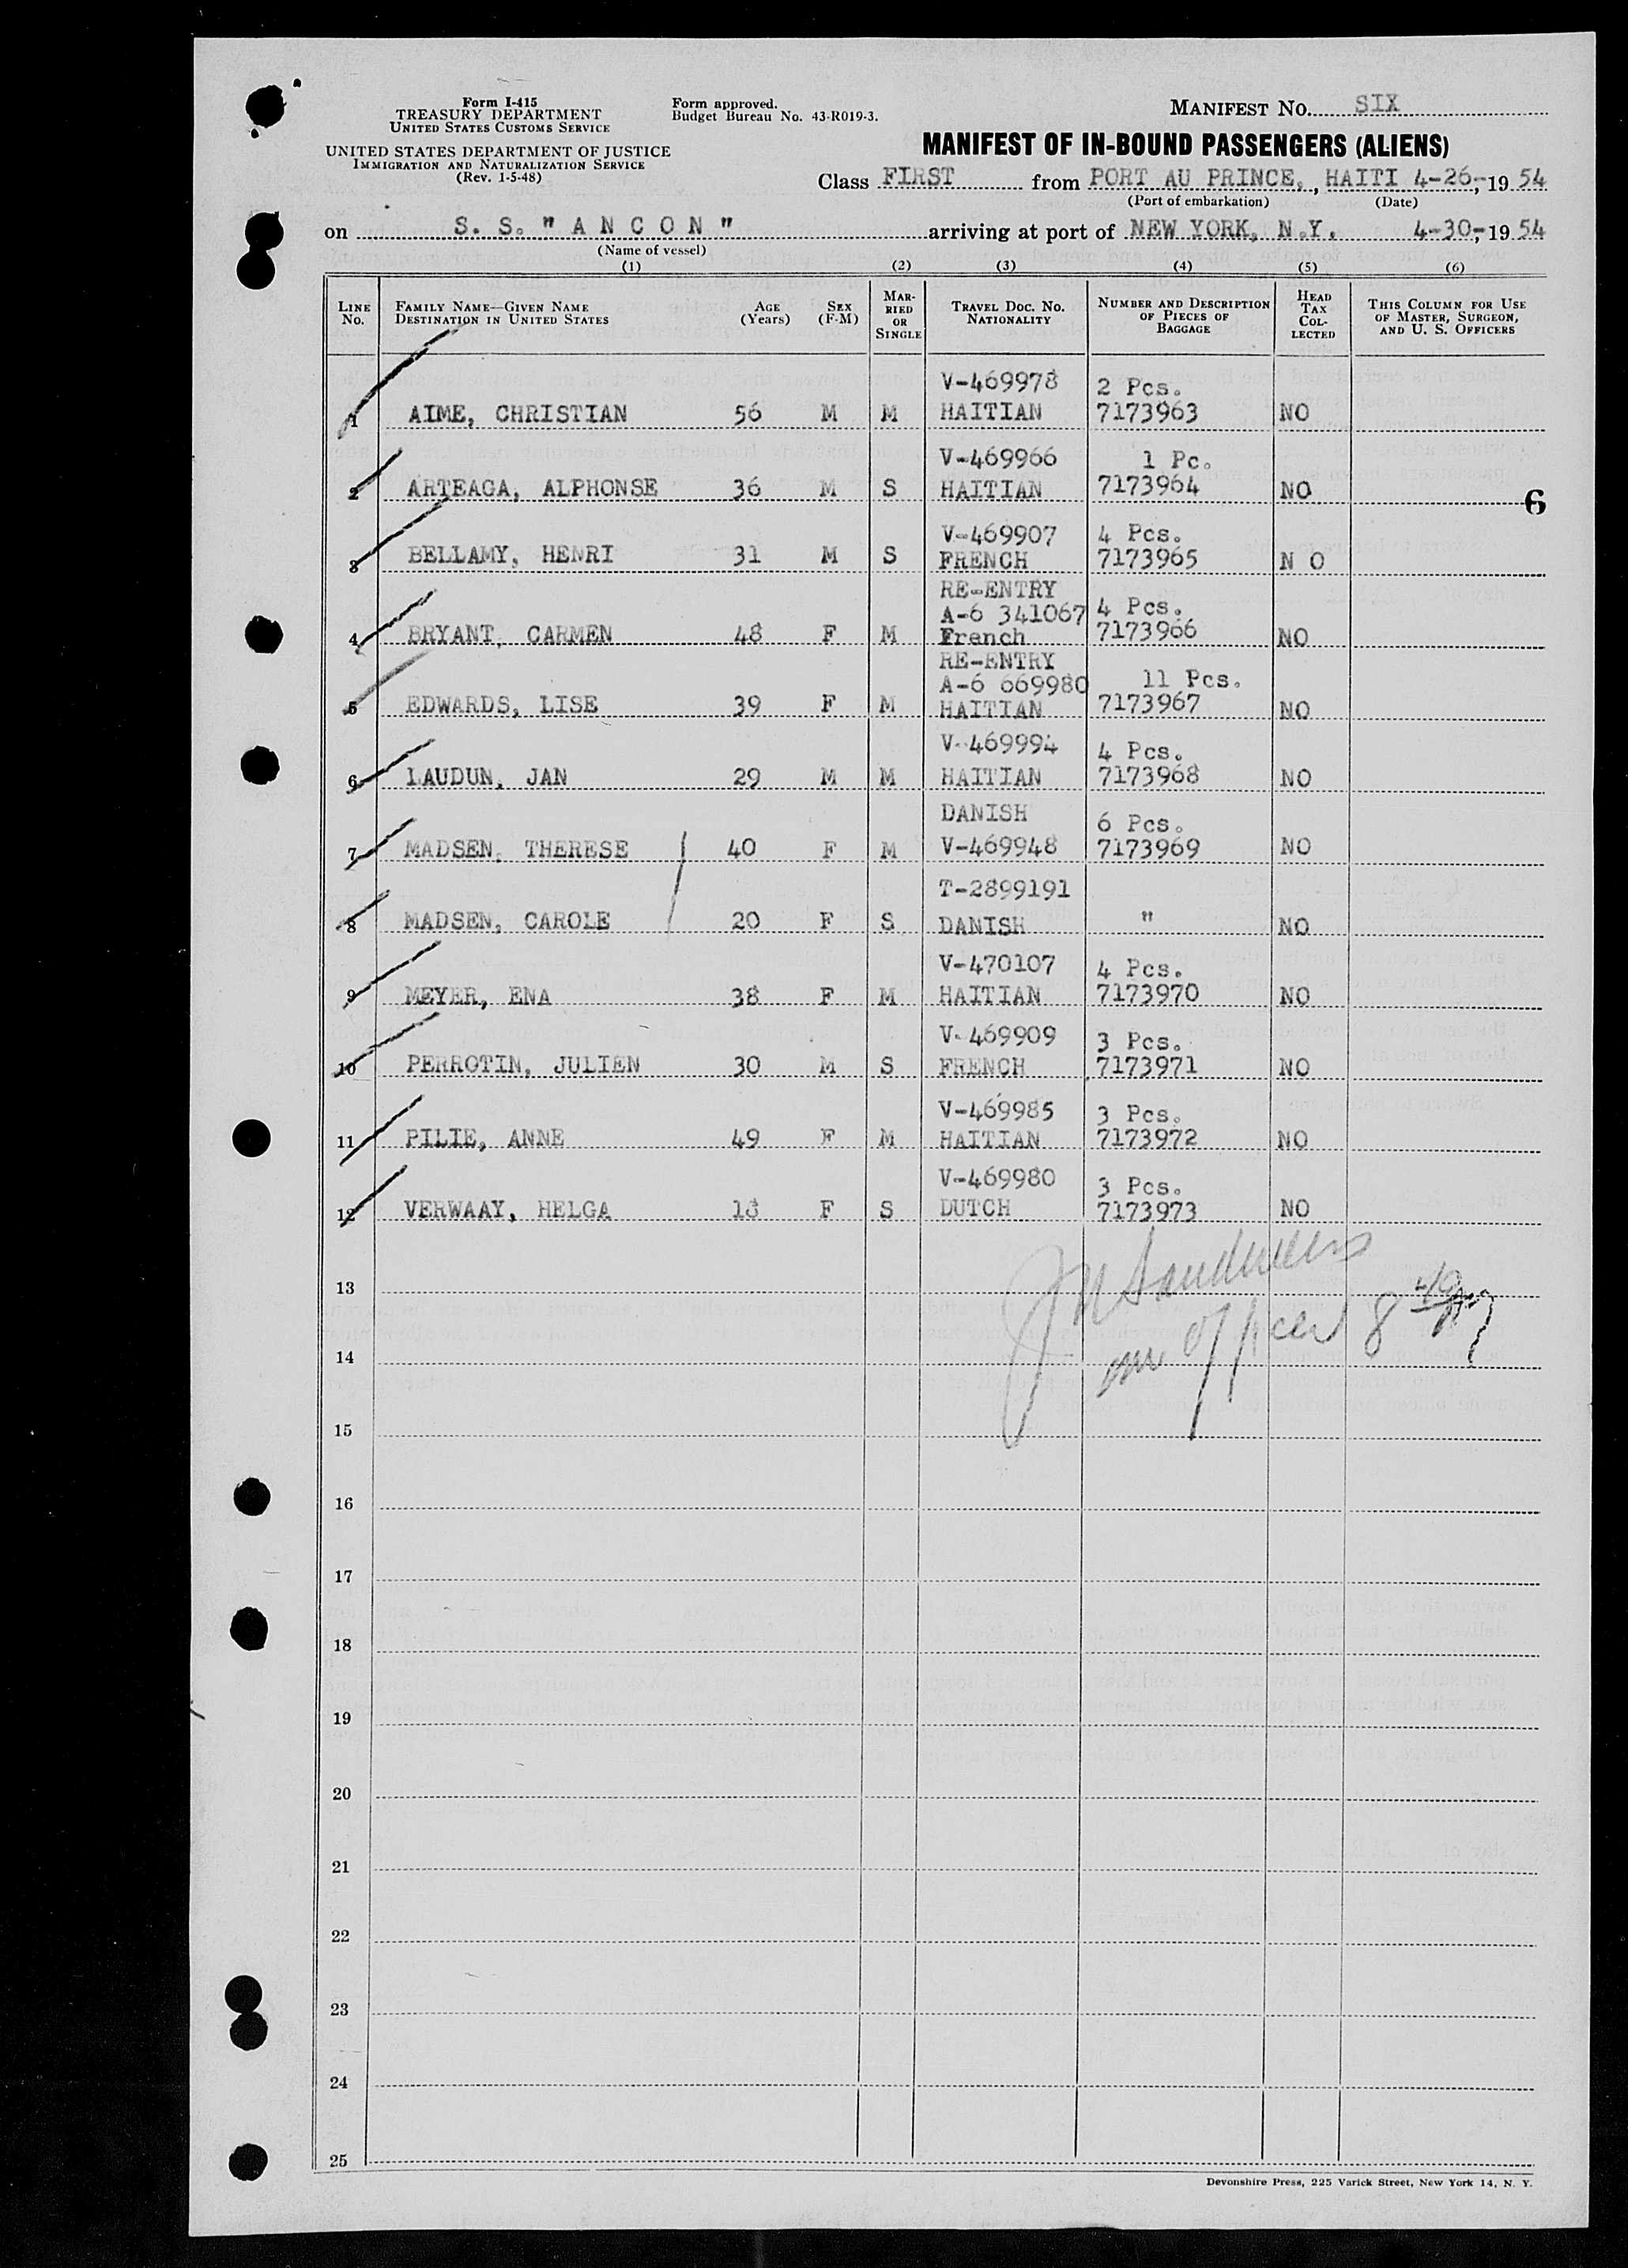 Form I-415
TREASURY DEPARTMENT
UNITED STATES CUSTOMS SERVICE
UNITED STATES DEPARTMENT OF JUSTICE
IMMIGRATION AND NATURALIZATION SERVICE
(Rev. 1-5-48)
Form approved.
Budget Bureau No. 43-R019-3.
MANIFEST NO. SIX
MANIFEST OF IN-BOUND PASSENGERS (ALIENS)
Class FIRST from PORT AU PRINCE, HAITI 4-26-, 1954
(Port of embarkation) (Date)
on S. S. "ANCON" arriving at port of NEW YORK, N.Y. 4-30-, 1954
(Name of vessel)
(1) (2) (3) (4) (5) (6)
LINE No. FAMILY NAME—GIVEN NAME DESTINATION IN UNITED STATES AGE (Years) SEX (F-M) MARRIED OR SINGLE TRAVEL DOC. NO. NATIONALITY NUMBER AND DESCRIPTION OF PIECES OF BAGGAGE HEAD TAX COLLECTED THIS COLUMN FOR USE OF MASTER, SURGEON, AND U. S. OFFICERS
V-469978 2 Pcs.
1 AIME, CHRISTIAN 56 M M HAITIAN 7173963 NO
V-469966 1 Pc.
2 ARTEAGA, ALPHONSE 36 M S HAITIAN 7173964 NO
6
V-469907 4 Pcs.
3 BELLAMY, HENRI 31 M S FRENCH 7173965 N O
RE-ENTRY
A-6 341067 4 Pcs.
4 BRYANT, CARMEN 48 F M French 7173966 NO
RE-ENTRY
A-6 669980 11 Pcs.
5 EDWARDS, LISE 39 F M HAITIAN 7173967 NO
V-469994 4 Pcs.
6 LAUDUN, JAN 29 M M HAITIAN 7173968 NO
DANISH 6 Pcs.
7 MADSEN, THERESE 40 F M V-469948 7173969 NO
T-2899191
8 MADSEN, CAROLE 20 F S DANISH " NO
V-470107 4 Pcs.
9 MEYER, ENA 38 F M HAITIAN 7173970 NO
V-469909 3 Pcs.
10 PERROTIN, JULIEN 30 M S FRENCH 7173971 NO
V-469985 3 Pcs.
11 PILIE, ANNE 49 F M HAITIAN 7173972 NO
V-469980 3 Pcs.
12 VERWAAY, HELGA 18 F S DUTCH 7173973 NO
13
officer 8
14
15
16
17
18
19
20
21
22
23
24
25
Devonshire Press, 225 Varick Street, New York 14, N. Y.